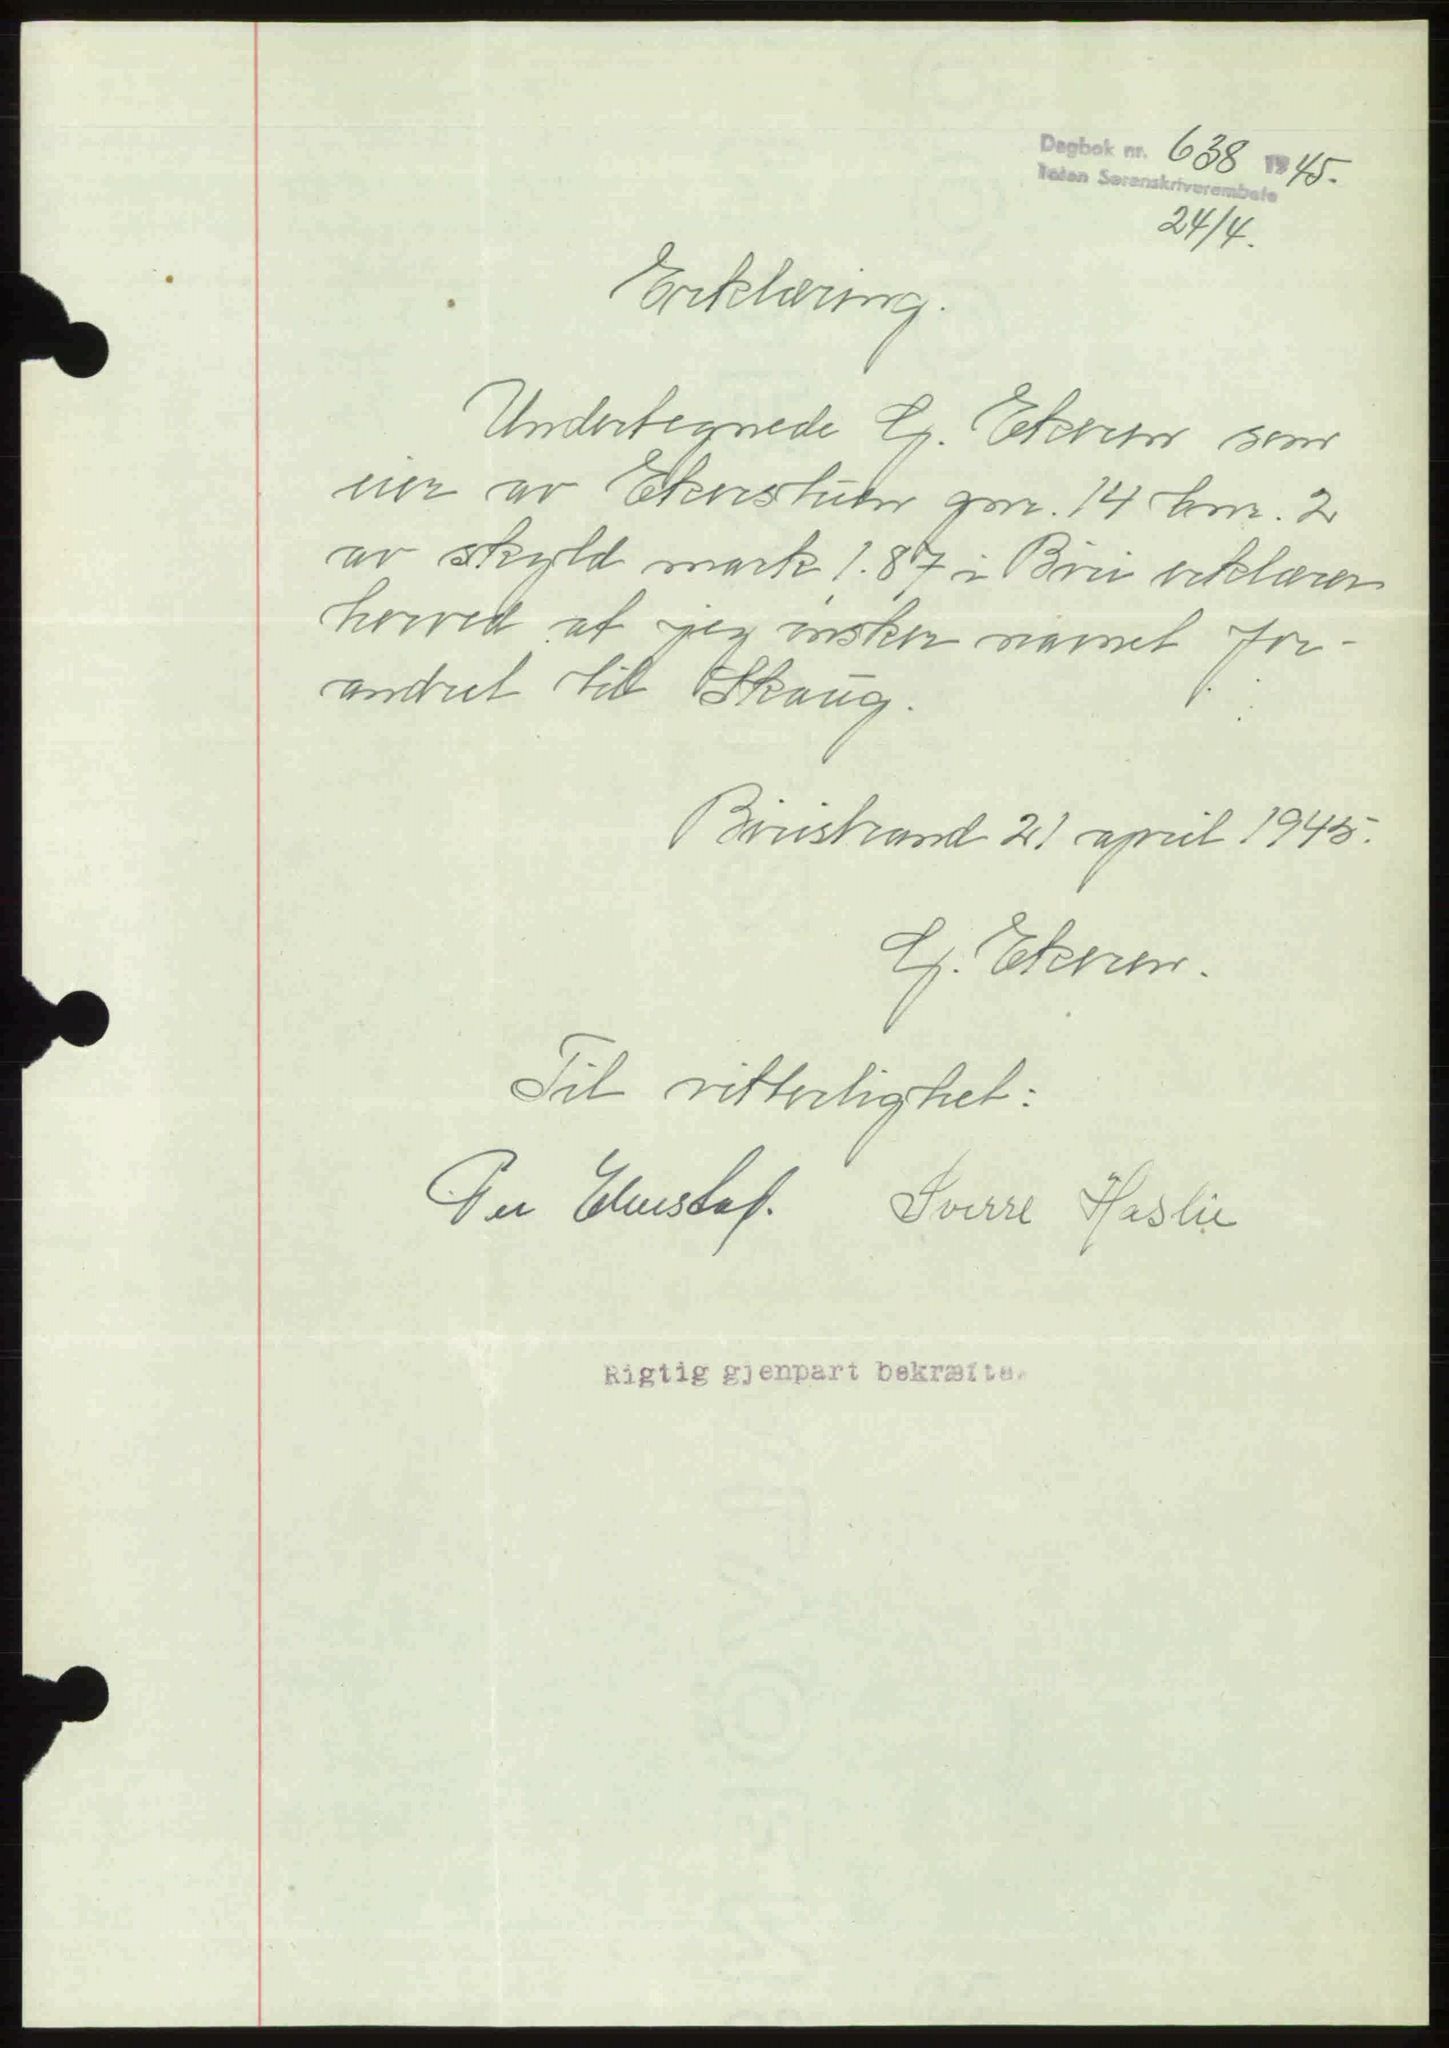 Dagbok nr. 638 1945.
Toten Sorenskriverembete
24/4.
Erklæring.
Undertegnede G. Ekeren som
eier av Ekerstuen gnr. 14 bnr. 2
av skyld mark 1.87 i Biri erklærer
herved at jeg ønsker navnet for-
andret til Skaug.
Biristrand 21 april 1945.
G. Ekeren.
Til vitterlighet:
Per Sverre Haslie
Rigtig gjenpart bekræftes